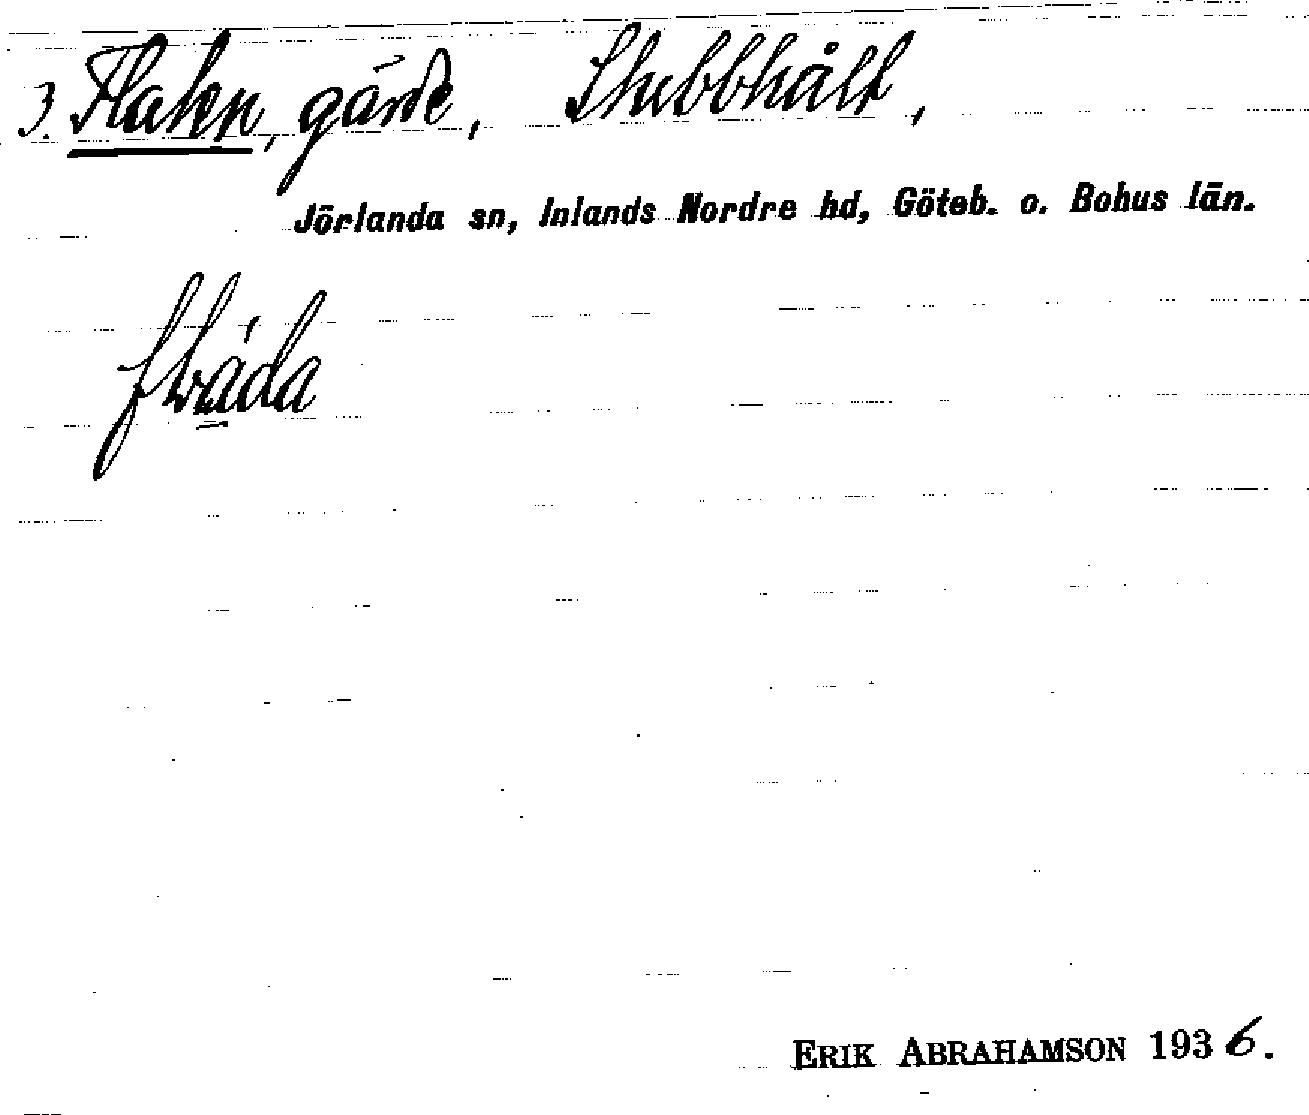 3. Flaten, gärde, Stubbhålt,
Jörlanda sn, Inlands Nordre hd, Göteb. o. Bohus län.
ERIK ABRAHAMSON 1936.